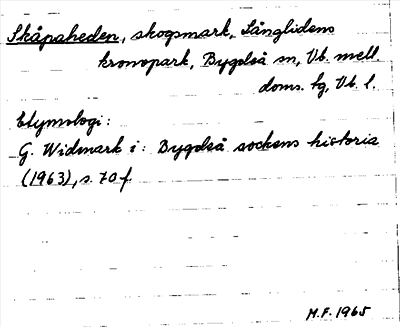 Skåpaheden, skogsmark, Långlidens
kronopark, Bygdeå sn, Vb. mell.
doms. hg, Vb. l.
Etymologi:
G. Widmark i: Bygdeå sockens historia
(1963), s. 70 f.
M.F. 1965